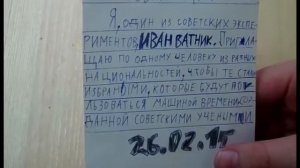 Я, ОДИН ИЗ СОВЕТСКИХ ЭКСПЕ-
РИМЕНТОВ, ИВАН ВАТНИК. ПРИГЛА-
ЩАЮ ПО ОДНОМУ ЧЕЛОВЕКУ ИЗ РАЗНЫХ
НАЦИОНАЛЬНОСТЕЙ, ЧТОБЫ ТЕ СТАЛИ
ИЗБРАННЫМИ, КОТОРЫЕ БУДУТ ПОЛ
ЬЗОВАТЬСЯ МАШИНОЙ ВРЕМЕНИ,
ДАННОЙ СОВЕТСКИМИ УЧЕНЫМИ
26.02.15